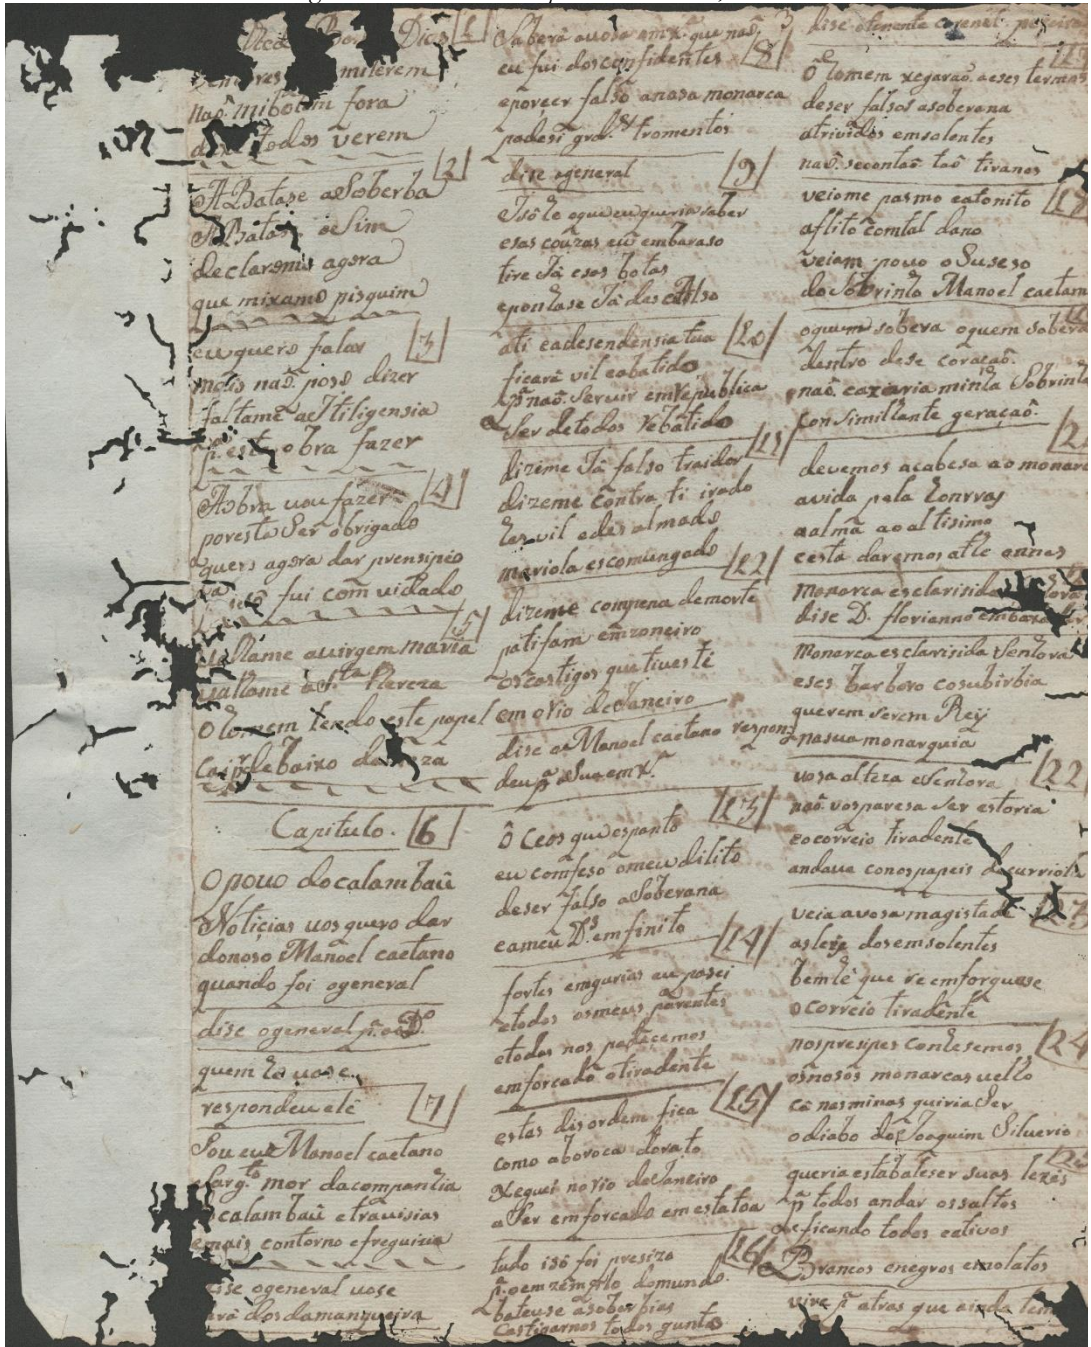 Dias 1
naõ mibotem fora
todos verem
2
ABatase aSoberba
ABatase oSim
declaremis agora
que mixamo pisquim
euquero falar 3
mais naõ poso dizer
faltame aItiligensia
obra fazer
Aobra uou fazer 4
poresta Ser obrigado
quero agora dar prensipeo
fui com uidado
5
auirgem maria
O homem lendo este papel
Capitulo. 6
O pouo docalambaû
Noticias uos quero dar
donoso Manoel caetano
quando foi ogeneral
dise ogeneral
quem he uose
respondeu elê 7
Sou eu Manoel caetano
Sargto mor dacompanhia
calambaû etrauisias
emais contorno efreguizia
dise ogeneral uose
dosdamangueira
Saberá auosa emxa que naõ
eu fui dosconfidentes 8
eporeer falso anosa monarca
padesi grdes tromentos
dise ogeneral 9
Isó he oque eu queria saber
esas couzas eu embaraso
tire Já esas botas
eponhase Já descalso
ati eadesendensia tua 10
ficará vil eabatido
pa naõ Seruir emRepublica
Ser detodos Rebatido
dizeme Já falso traidor 11
dizeme contra ti irado
hes vil edesalmado
mariola escomungado 12
dizeme compena demorte
patifam emzoneiro
oscastigos que tiueste
em orio deJaneiro
dise oManoel caetano respon
deu pa aSua emxa
13
Ô Ceos que espanto
eu comfeso omeu dilito
deser falso aSoberana
eameu Ds emfinito 14
fortes emgurias eu pasei
etodos osmeus parentes
etodos nos padecemos
emforcado otiradente
estas disordem fica 15
como aboroca dorato
xeguei norio deJaneiro
aSer emforcado em estatoa
tudo isó foi presizo 16
pa oemzemplo domundo
bateuse asoberbias
Castigarnos todos gunto
dise otenente coronel
Ô homem xegaraõ aeses termos
deser falsos asoberana
atrividos emsolentes
naõ secontaõ taõ tiranos
veiome pasmo eatonito 18
aflito comtal dano
veiam pouo oSuseso
doSobrinho Manoel caetano
oquem sobera oquem sobera
dentro dese coraçaõ
naõ cazaria minha Sobrinha
con Similhante geraçaõ
2
devemos acabesa ao monarca
avida pela honrras
aalma aoaltisimo
cesta daremos athe annas
Monarca esclarisida
dise D. florianno
Monarca esclarisida Senhora
eses barbaro cosubirbia
querem serem Rey
nasua monarquia
vosa alteza eSenhora 22
naõ vosparesa Ser estoria
eocorreio tiradente
andaua conospapeis docurriola
veia auosa magistade 23
asleis dosemsolentes
bem he que re emforquase
o correio tiradente
nospresipes Conhesemos 24
osnosos monarcas uelho
cá nasminas quiria Ser
odiabo do Joaquim Siluerio
queria estabaleser suas lezes
pa todos andar ossaltos
eficando todos catiuos
Brancos enegros emolatos
vire pa atras que ainda tem